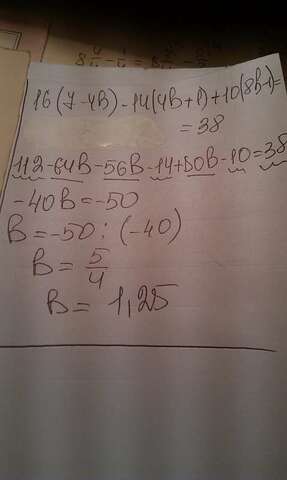 16(7-4B)-14(4B+1)+10(8B-1)=
=38
112-64B-56B-14+80B-10=38
-40B=-50
B=-50:(-40)
B=5/4
B=1,25